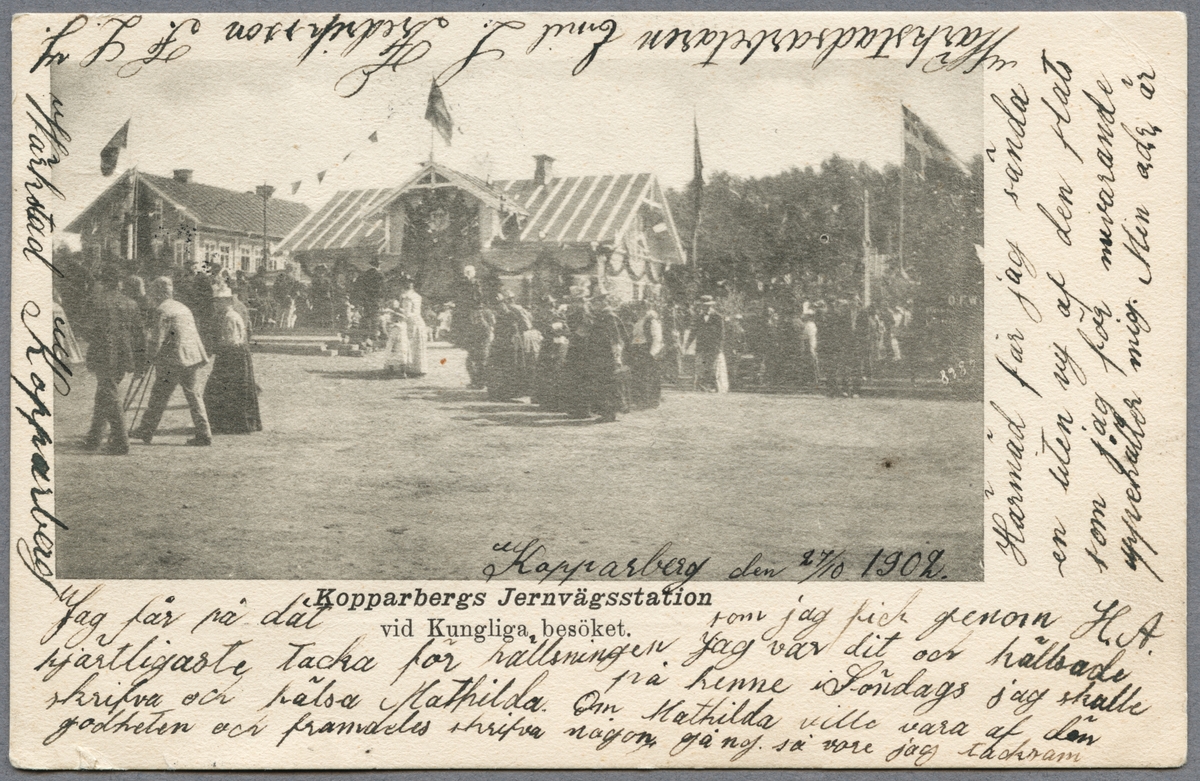 Kopparberg den 27/10 1902.
Kopparbergs Jernvägsstation
vid Kungliga besöket.
Jag får på dät som jag fick genom H. A.
hjärtligaste tacka för hällsningen Jag var dit och hällsade
på henne i Söndags jag skulle
skrifva och hälsa Mathilda. Om Mathilda ville vara af den
godheten och framdeles skrifva någon gång. så vore jag tacksam
Härmäd får jag sända
en liten vy af den stats
som jag för nuvarande
uppehåller mig. Min adr, är
Värkstadsarbetaren Emil L. Fredriksson F. L. J.
Värkstad Kopparberg
8287